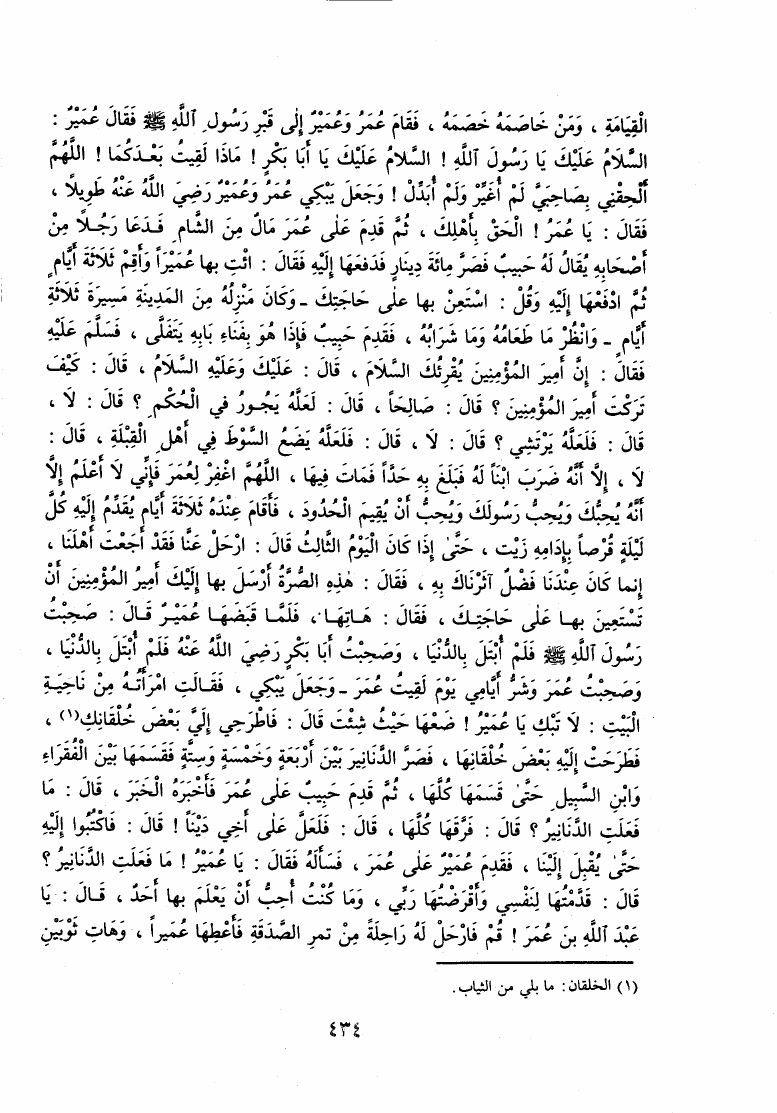 الْقِيَامَةِ ، وَمَنْ خَاصَمَهُ خَصَمَهُ ، فَقَامَ عُمَرُ وَعُمَيْرٌ إِلٰى قَبْرِ رَسُولِ ٱللَّهِ ﷺ فَقَالَ عُمَيْرٌ :
السَّلَامُ عَلَيْكَ يَا رَسُولَ ٱللَّهِ ! السَّلَامُ عَلَيْكَ يَا أَبَا بَكْرٍ ! مَاذَا لَقِيتُ بَعْدَكُمَا ! اللَّهُمَّ
أَلْحِقْنِي بِصَاحِبَيَّ لَمْ أُغَيِّرْ وَلَمْ أُبَدِّلْ ! وَجَعَلَ يَبْكِي عُمَرُ وَعُمَيْرٌ رَضِيَ اللَّهُ عَنْهُ طَوِيلًا ،
فَقَالَ : يَا عُمَرُ ! الْحَقْ بِأَهْلِكَ ، ثُمَّ قَدِمَ عَلٰى عُمَرَ مَالٌ مِنَ الشَّامِ فَدَعَا رَجُلًا مِنْ
أَصْحَابِهِ يُقَالُ لَهُ حَبِيبٌ فَصَرَّ مِائَةَ دِينَارٍ فَدَفَعَهَا إِلَيْهِ فَقَالَ : ائْتِ بها عُمَيْرَاً وَأَقِمْ ثَلَاثَةَ أَيَّامٍ
ثُمَّ ادْفَعْهَا إِلَيْهِ وَقُلْ : اسْتَعِنْ بها عَلٰى حَاجَتِكَ - وَكَانَ مَنْزِلُهُ مِنَ المَدِينَةِ مَسِيرَةَ ثَلَاثَةِ
أَيَّامٍ - وَانْظُرْ مَا طَعَامُهُ وَمَا شَرَابُهُ ، فَقَدِمَ حَبِيبٌ فَإِذَا هُوَ بِفَنَاءِ بَابِهِ يَتَفَلَّى ، فَسَلَّمَ عَلَيْهِ
فَقَالَ : إِنَّ أَمِيرَ المُؤْمِنِينَ يُقْرِئُكَ السَّلَامَ ، قَالَ : عَلَيْكَ وَعَلَيْهِ السَّلَامُ ، قَالَ : كَيْفَ
تَرَكْتَ أَمِيرَ المُؤْمِنِينَ ؟ قَالَ : صَالِحَاً ، قَالَ : لَعَلَّهُ يَجُورُ في الْحُكْمِ ؟ قَالَ : لَا ،
قَالَ : فَلَعَلَّهُ يَرْتَشِي ؟ قَالَ : لَا ، قَالَ : فَلَعَلَّهُ يَضَعُ السَّوْطَ فِي أَهْلِ الْقِبْلَةِ ، قَالَ :
لَا ، إِلَّا أَنَّهُ ضَرَبَ ابْنَاً لَهُ فَبَلَغَ بِهِ حَدَّاً فَمَاتَ فِيهَا ، اللَّهُمَّ اغْفِرْ لِعُمَرَ فَإِنِّي لَا أَعْلَمُ إِلَّا
أَنَّهُ يُحِبُّكَ وَيُحِبُّ رَسُولَكَ وَيُحِبُّ أَنْ يُقِيمَ الْحُدُودَ ، فَأَقَامَ عِنْدَهُ ثَلَاثَةَ أَيَّامٍ يُقَدِّمُ إِلَيْهِ كُلَّ
لَيْلَةٍ قُرْصاً بِإِدَامِهِ زَيْت ، حَتَّىٰ إِذَا كَانَ الْيَوْمُ الثَّالِثُ قَالَ : ارْحَلْ عَنَّا فَقَدْ أَجَعْتَ أَهْلَنَا ،
إِنما كَانَ عِنْدَنَا فَضْلٌ آثَرْنَاكَ بِهِ ، فَقَالَ : هٰذِهِ الصُّرَّةُ أَرْسَلَ بها إِلَيْكَ أَمِيرُ المُؤْمِنِينَ أَنْ
تَسْتَعِينَ بهـا عَلَى حَاجَتِـكَ ، فَقَالَ : هَـاتِهَـا ، فَلَمَّا قَبَضَهَـا عُمَيْـرٌ قَـالَ : صَحِبْتُ
رَسُولَ ٱللَّهِ ﷺ فَلَمْ أُبْتَلَ بِالدُّنْيَا ، وَصَحِبْتُ أَبَا بَكْرٍ رَضِيَ اللَّهُ عَنْهُ فَلَمْ أُبْتَلَ بِالدُّنْيَا ،
وَصَحِبْتُ عُمَرَ وَشَرُّ أَيَّامِي يَوْمَ لَقِيتُ عُمَرَ - وَجَعَلَ يَبْكِي ، فَقَـالَتِ امْرَأَتُـهُ مِنْ نَاحِيَـةِ
الْبَيْتِ : لَا تَبْكِ يَا عُمَيْرُ ! ضَعْهَا حَيْثُ شِئْتَ قَالَ : فَاطْرَحِي إِلَيَّ بَعْضَ خُلْقَانِكِ(١) ،
فَطَرَحَتْ إِلَيْهِ بَعْضَ خُلْقَانِهَا ، فَصَرَّ الدَّنَانِيرَ بَيْنَ أَرْبَعَةٍ وَخَمْسَةٍ وَسِتَّةٍ فَقَسَمَهَا بَيْنَ الْفُقَرَاءِ
وَابْنِ السَّبِيلِ حَتَّىٰ قَسَمَهَا كُلَّهَا ، ثُمَّ قَدِمَ حَبِيبٌ عَلٰى عُمَرَ فَأَخْبَرَهُ الْخَبَرَ ، قَالَ : مَا
فَعَلَتِ الدَّنَانِيرُ ؟ قَالَ : فَرَّقَهَا كُلَّهَا ، قَالَ : فَلَعَلَّ عَلٰى أَخِي دَيْنَاً ! قَالَ : فَاكْتُبُوا إِلَيْهِ
حَتَّىٰ يُقْبِلَ إِلَيْنَا ، فَقَدِمَ عُمَيْرٌ عَلٰى عُمَرَ ، فَسَأَلَهُ فَقَالَ : يَا عُمَيْرُ ! مَا فَعَلَتِ الدَّنَانِيرُ ؟
قَالَ : قَدَّمْتُهَا لِنَفْسِي وَأَقْرَضْتُهَا رَبِّي ، وَمَا كُنْتُ أُحِبُّ أَنْ يَعْلَمَ بها أَحَدٌ ، قَـالَ : يَا
عَبْدَ اللَّهِ بنَ عُمَرَ ! قُمْ فَارْحَلْ لَهُ رَاحِلَةً مِنْ تمرِ الصَّدَقَةِ فَأَعْطِهَا عُمَيراً ، وَهَاتِ ثَوْبَيْنِ
(١) الخلقان : ما بلي من الثياب .
٤٣٤